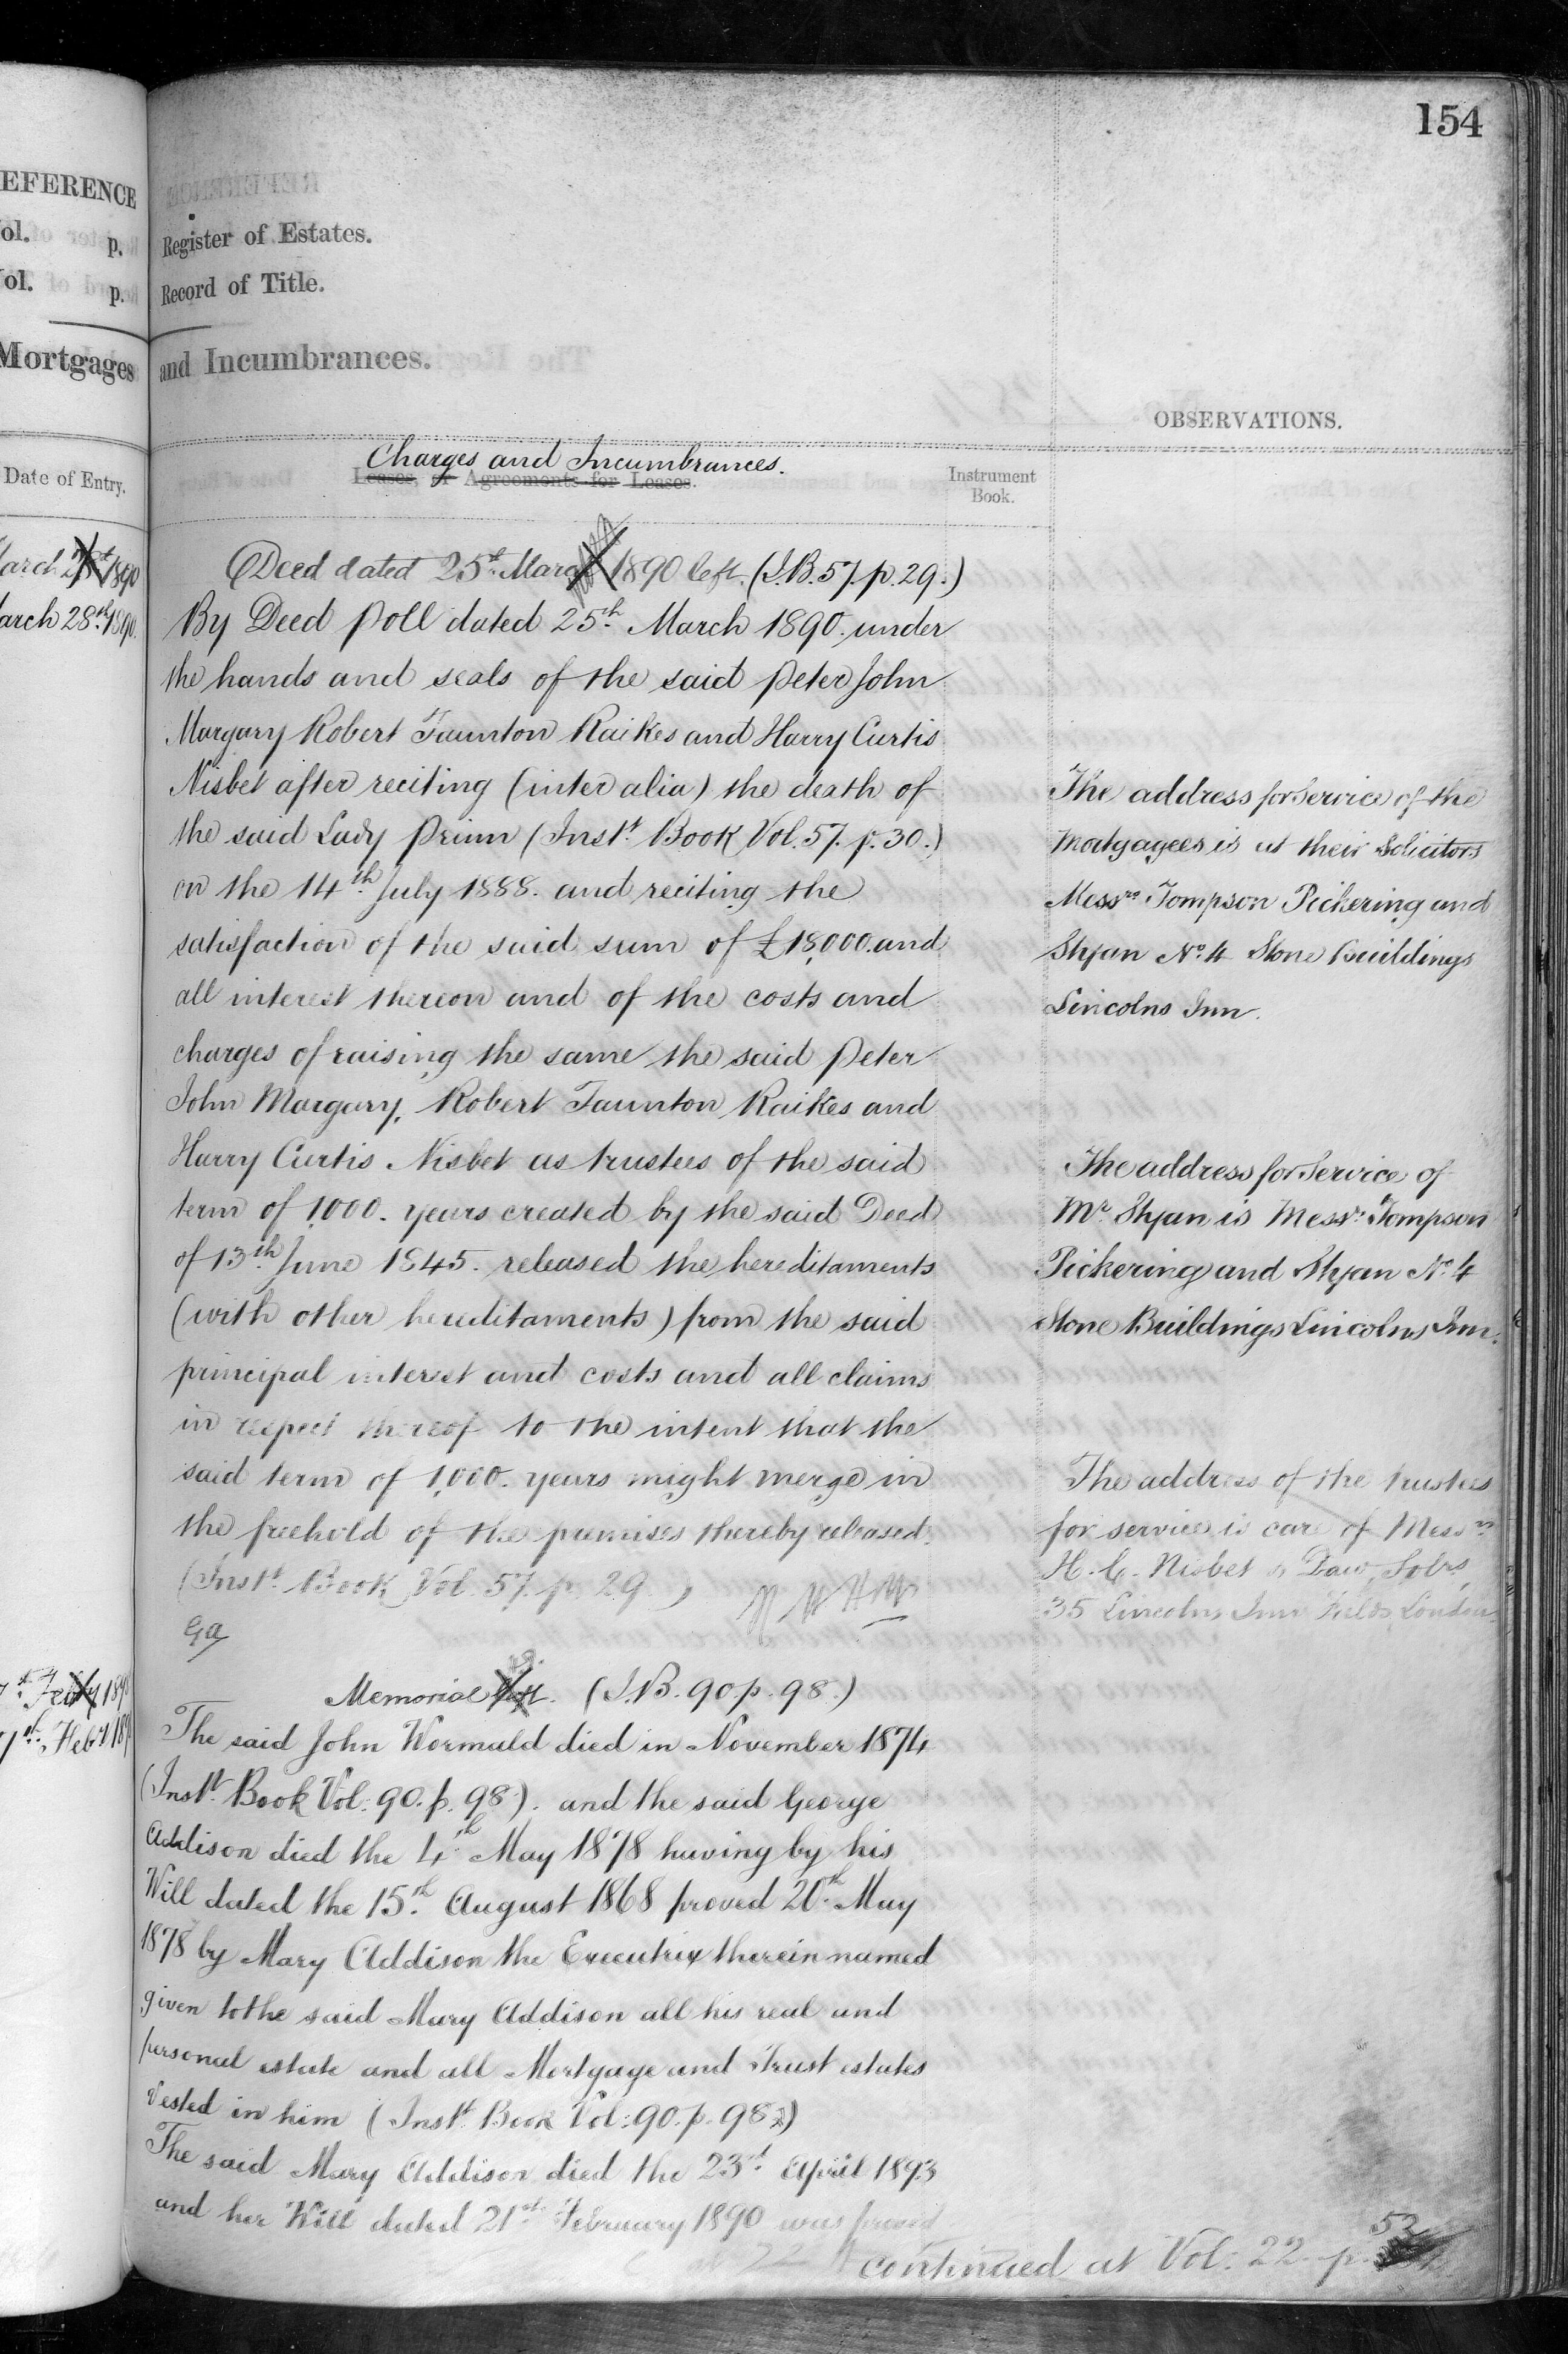 154
EFERENCE
ol. p.
Register of Estates.
ol. p.
Record of Title.
Mortgages
and Incumbrances.
OBSERVATIONS.
Date of Entry.
Charges and Incumbrances.
Leases, or Agreements for Leases.
Instrument
Book.
arch 1890
Deed dated 25th March 1890 left. (I.B. 57. p. 29.)
arch 28th 1890.
By Deed Poll dated 25th March 1890. under
the hands and seals of the said Peter John
Margary Robert Taunton Raikes and Harry Curtis
Nisbet after reciting (inter alia) the death of
the said Lady Prinn (Inst. Book Vol. 57. p. 30.)
on the 14th July 1888. and reciting the
satisfaction of the said sum of £18,000. and
all interest thereon and of the costs and
charges of raising the same the said Peter
John Margary, Robert Taunton Raikes and
Harry Curtis Nisbet as trustees of the said
term of 1,000. years created by the said Deed
of 13th June 1845. released the hereditaments
(with other hereditaments) from the said
principal interest and costs and all claims
in respect thereof to the intent that the
said term of 1,000. years might merge in
the freehold of the premises thereby released.
(Inst. Book Vol. 57. p. 29.)
Ga
The address for Service of the
Mortgagees is at their Solicitors
Messrs Tompson Pickering and
Styan No. 4 Stone Buildings
Lincolns Inn.
The address for Service of
Mr. Styan is Messrs. Tompson
Pickering and Styan No. 4
Stone Buildings Lincolns Inn.
The address of the trustees
for service is care of Messrs
H. C. Nisbet & Daw, Solrs,
35 Lincolns Inn Fields, London
Memorial left. (I.B. 90. p. 98.)
The said John Wormald died in November 1874
(Inst. Book Vol: 90. p. 98.). and the said George
Addison died the 4th May 1878 having by his
Will dated the 15th August 1868 proved 20th May
1878 by Mary Addison the Executrix therein named
given to the said Mary Addison all his real and
personal estate and all Mortgage and Trust estates
vested in him (Inst. Book Vol: 90. p. 98)
The said Mary Addison died the 23rd April 1893
and her Will dated 21st February 1890 was proved
continued at Vol: 22. p. 52